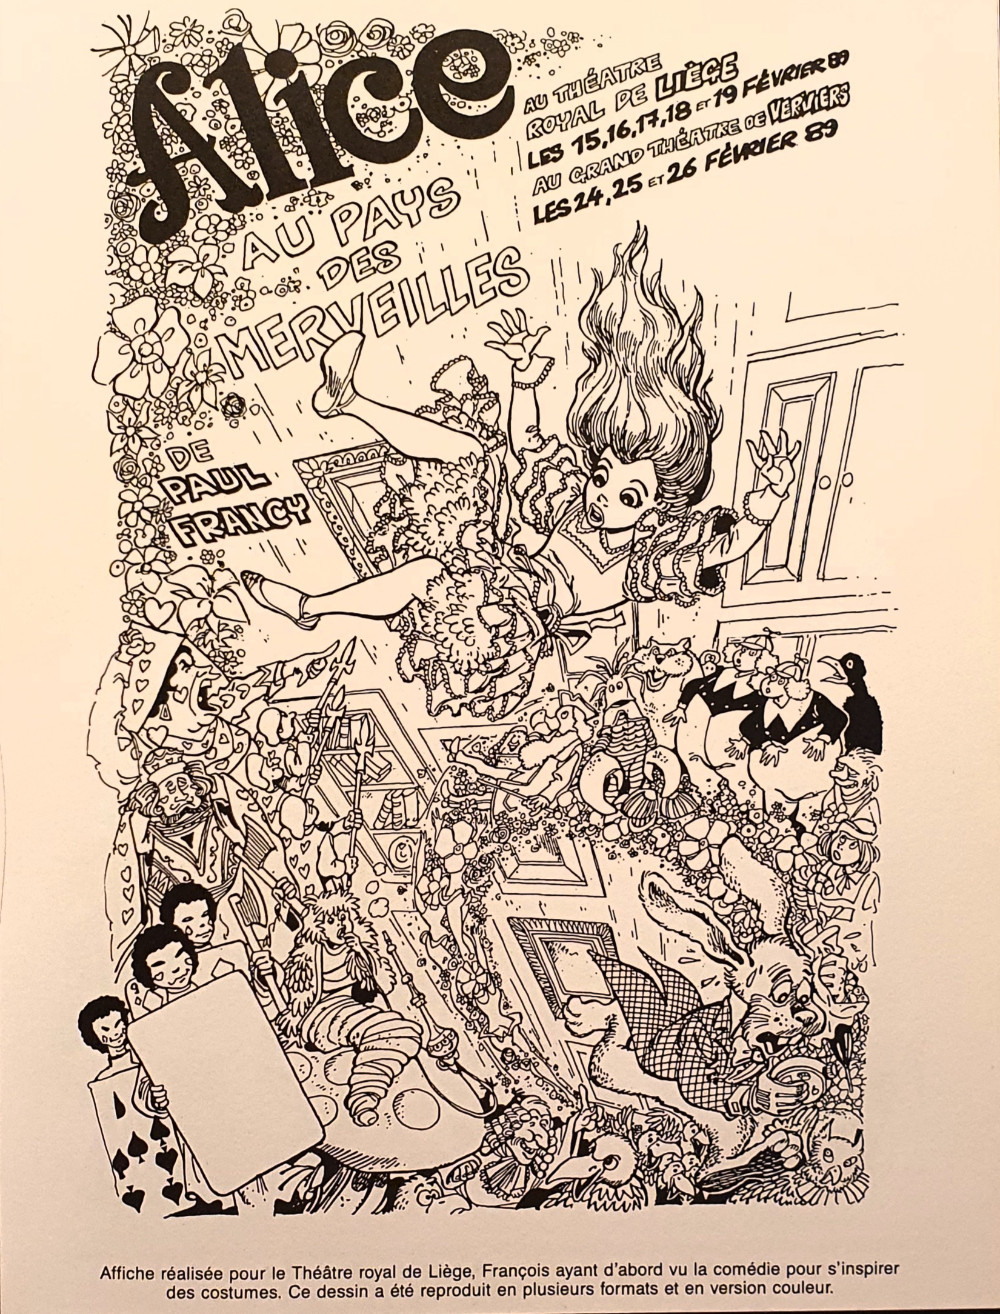 Alice
AU PAYS
DES
MERVEILLES
DE
PAUL
FRANCY
AU THÉATRE
ROYAL DE LIÈGE
LES 15,16,17,18 ET 19 FÉVRIER 89
AU GRAND THÉATRE DE VERVIERS
LES 24, 25 ET 26 FÉVRIER 89
Affiche réalisée pour le Théâtre royal de Liège, François ayant d'abord vu la comédie pour s'inspirer
des costumes. Ce dessin a été reproduit en plusieurs formats et en version couleur.